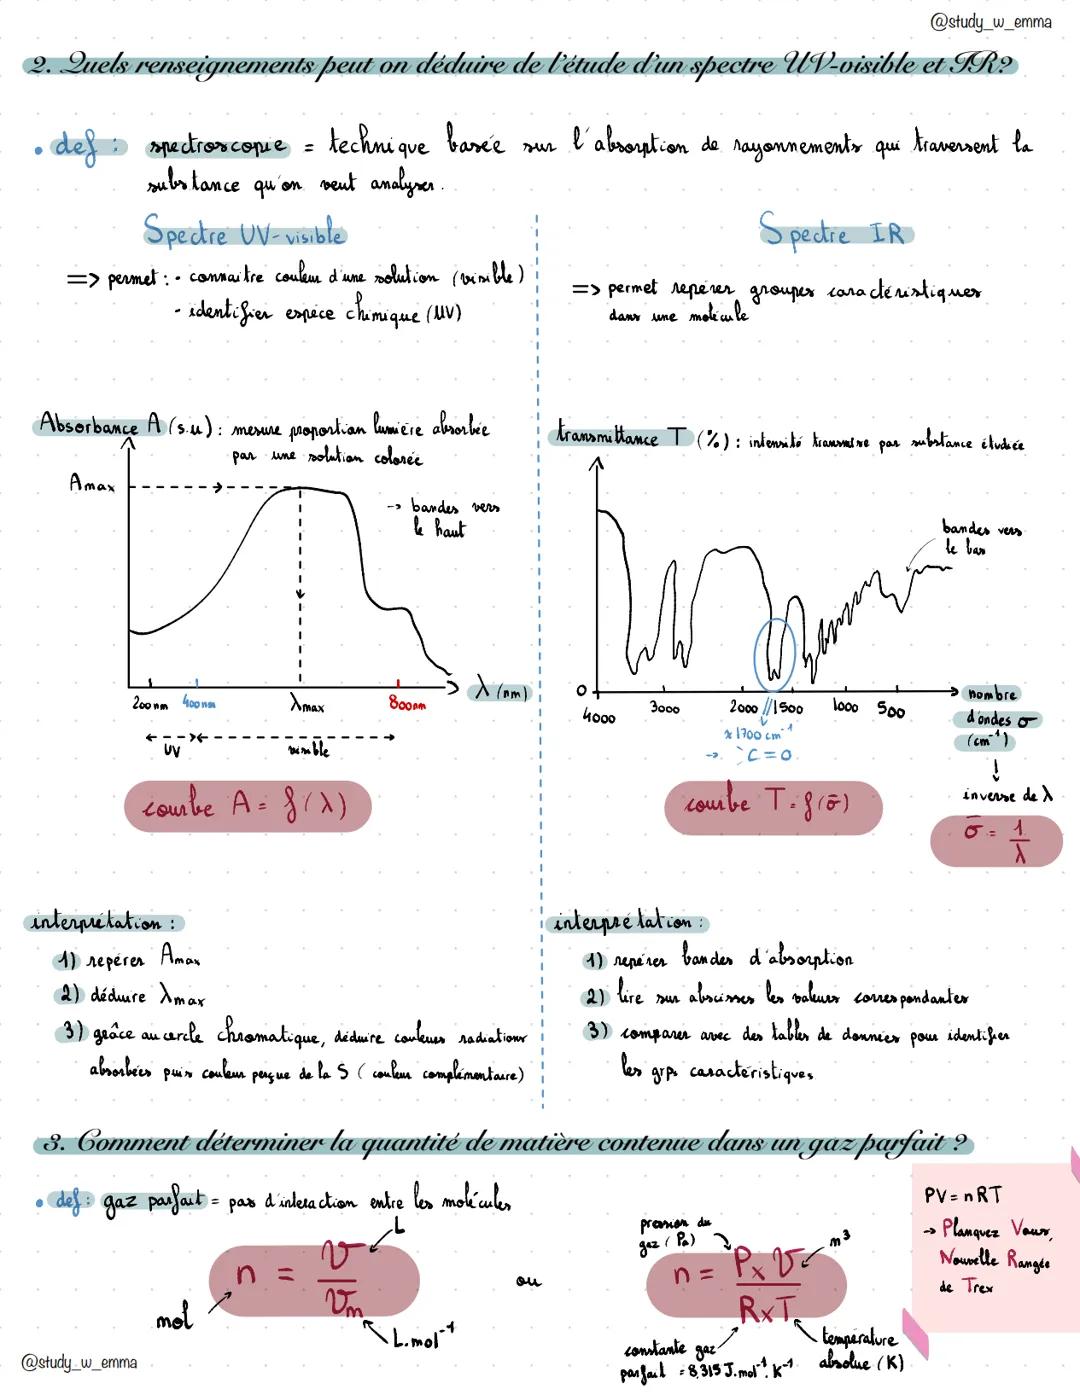 @study_w_emma
2. Quels renseignements peut on déduire de l'étude d'un spectre UV-visible et IR?
• def : spectroscopie = technique basée sur l'absorption de rayonnements qui traversent la
substance qu'on veut analyser.
Spectre UV-visible
=> permet : - connaitre couleur d'une solution (visible)
- identifier espèce chimique (UV)
Absorbance A (s.u) : mesure proportion lumière absorbée
par une solution colorée
Amax
-> bandes vers
le haut
λ (nm)
200 nm 400 nm λmax 800nm
UV visible
courbe A = f(λ)
interprétation :
1) repérer Amax
2) déduire λmax
3) grâce au cercle chromatique, déduire couleurs radiations
absorbées puis couleur perçue de la S (couleur complémentaire)
Spectre IR
=> permet repérer groupes caractéristiques
dans une molécule
transmittance T (%) : intensité transmise par substance étudiée
bandes vers
le bas
0
4000 3000 2000 // 1500 1000 500
≈ 1700 cm⁻¹
-> C=O
nombre
d'ondes σ
(cm⁻¹)
inverse de λ
σ̄ = 1/λ
courbe T = f(σ̄)
interprétation :
1) repérer bandes d'absorption
2) lire sur abscisses les valeurs correspondantes
3) comparer avec des tables de données pour identifier
les grps caractéristiques
3. Comment déterminer la quantité de matière contenue dans un gaz parfait ?
• def : gaz parfait = pas d'interaction entre les molécules
n = V/Vm
L
mol
L.mol⁻¹
ou
pression du
gaz (Pa)
n = P x V / R x T
m³
constante gaz
parfait = 8,315 J.mol⁻¹.K⁻¹
température
absolue (K)
PV = nRT
-> Planquez Vous,
Nouvelle Rangée
de Trex
@study_w_emma